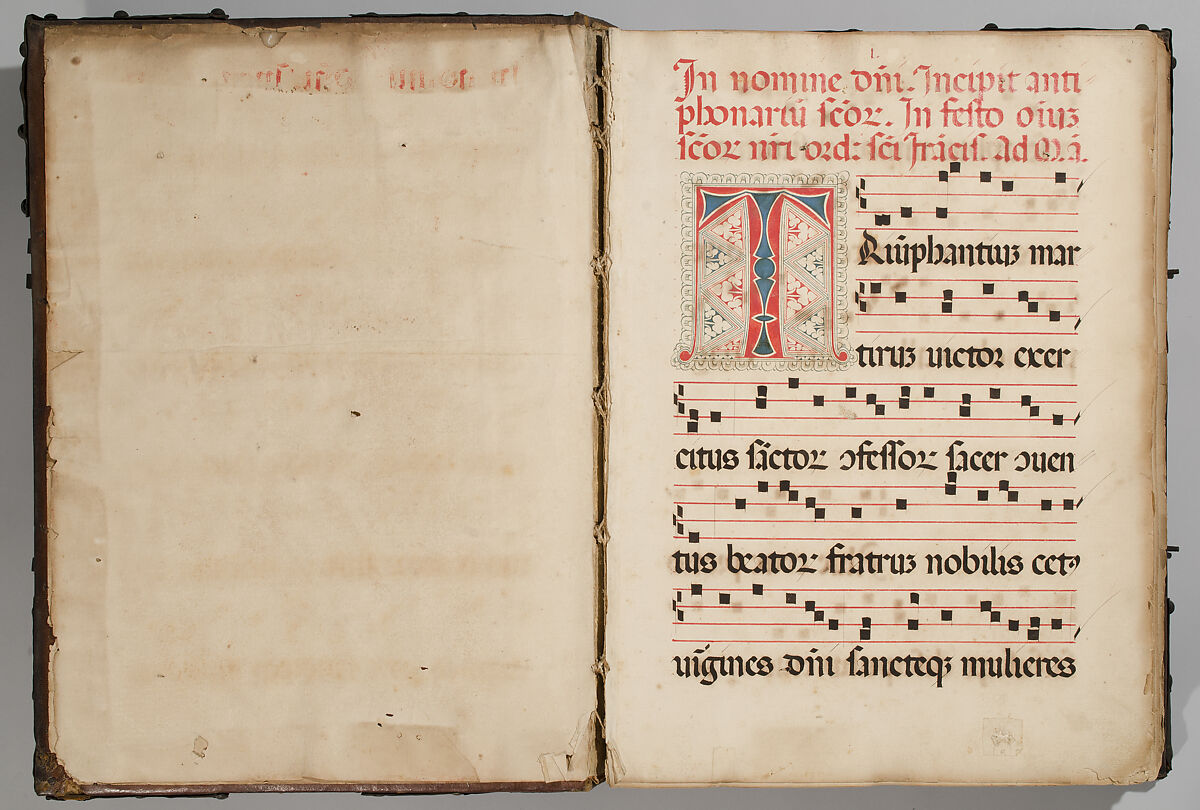 I.
In nomine dñi. Incipit anti
phonariū sc̄oꝝ. In festo oīuꝫ
sc̄oꝝ nr̄i ord: sc̄i frācis. Ad M̄ ā.
T Riūphantiuꝫ mar
tiruꝫ uictor exer
citus sāctoꝝ ↄfessoꝝ sacer ↄuen
tus beatoꝝ fratruꝫ nobilis cetꝰ
uīgines dñi sancteqꝫ mulieres